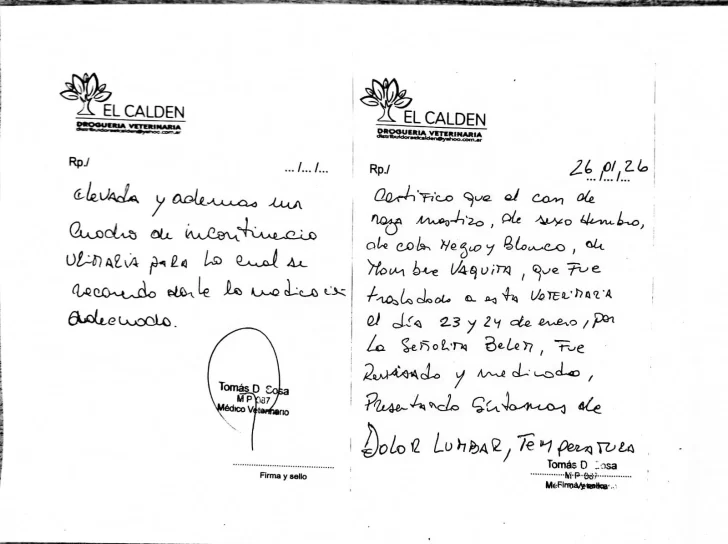 EL CALDEN
DROGUERIA VETERINARIA
distribuidoraelcalden@yahoo.com.ar
Rp./ .../.../...
elevada y ademas un
Cuadro de incontinecio
URINARIA para lo cual se
recomendo darle la medicación
adecuada.
Tomás D. Sosa
M P 087
Médico Veterinario
Firma y sello
EL CALDEN
DROGUERIA VETERINARIA
distribuidoraelcalden@yahoo.com.ar
Rp./ 26/01/26
Certifico que el can de
raza mestizo, de sexo Hembra,
de color Negro y Blanco, de
Nombre VAQUITA, que fue
trasladado a esta VETERINARIA
el día 23 y 24 de enero, por
La Señorita Belen, Fue
Revisado y medicado,
Presentando Síntomas de
DOLOR LUMBAR, TEMPERATURA
Tomás D. Sosa
M P 087